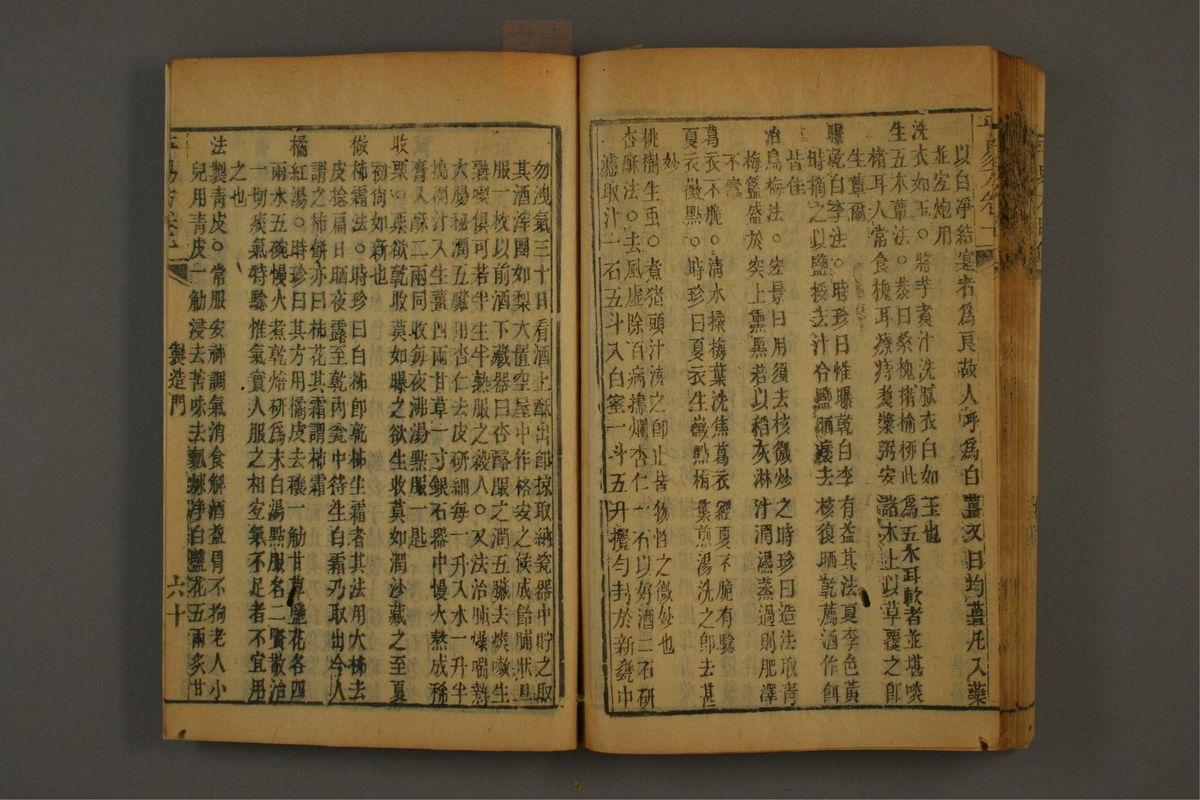 以白淨結塞者爲良故人呼爲白薑又曰均薑凡入藥
並宜炮用
洗衣如玉○將芋煮汁洗膩衣白如玉也
生五木蕈法○恭曰桑槐楮榆柳此爲五木耳軟者並堪啖
楮耳人常食槐耳療痔煑漿粥安諸木上以草覆之卽
生蕈爾
曝乾白李法○時珍曰惟曝乾白李有益其法夏李色黃
時摘之以鹽挼去汁合鹽晒萎去核復晒乾薦酒作飣
皆佳
治烏梅法○宏景曰用須去核微炒之時珍曰造法取青
梅籃盛於突上熏黑若以稻灰淋汁潤濕蒸過則肥澤
不蠹
葛衣不脆○清水揉梅葉洗焦葛衣經夏不脆有驗
夏衣黴點○時珍曰夏衣生黴點梅葉煎湯洗之卽去甚
妙
桃樹生虫○煮猪頭汁澆之卽止皆物性之微妙也
杏酥法○去風虛除百病擣爛杏仁一石以好酒二石研
濾取汁一石五斗入白蜜一斗五升攪勻封於新甕中
勿洩氣三十日看酒上酥出卽掠取納瓷器中貯之取
其酒滓團如梨大置空屋中作格安之候成飴脯狀旦
服一枚以前酒下藏器曰杏酪服之潤五臟去痰嗽生
熟喫俱可若半生半熟服之殺人○又法治肺燥喘熱
大腸秘潤五臟用杏仁去皮研細每一升入水一升半
搗稠汁入生薑四兩甘草一寸銀石器中慢火熬成稀
膏入酥二兩同收每夜沸湯點服一匙
收栗○栗欲乾收莫如曝之欲生收莫如潤沙藏之至夏
初尚如新也
做柿霜法○時珍曰白柿卽乾柿生霜者其法用大柿去
皮捻扁日晒夜露至乾內瓮中待生白霜乃取出今人
謂之柿餅亦曰柿花其霜謂柿霜
橘紅湯○時珍曰其方用橘皮去穰一觔甘草鹽花各四
兩水五碗慢火煮乾焙硏爲末白湯點服名二賢散治
一切痰氣特驗惟氣實人服之相宜氣不足者不宜用
之也
法製青皮○常服安神調氣消食解酒益胃不拘老人小
兒用青皮一觔浸去苦味去瓤揀淨白鹽花五兩炙甘
平易方卷二
製造門
六十